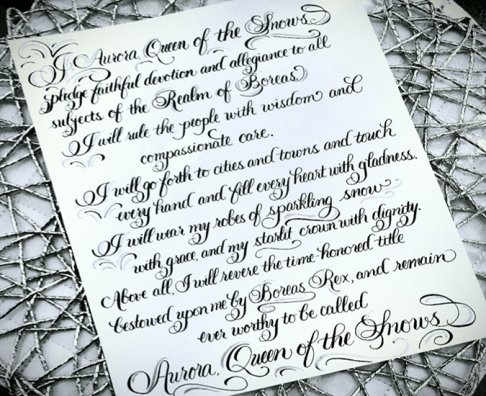 I, Aurora, Queen of the Snows,
pledge faithful devotion and allegiance to all
subjects of the Realm of Boreas.
I will rule the people with wisdom and
compassionate care.
I will go forth to cities and towns and touch
every hand and fill every heart with gladness.
I will wear my robes of sparkling snow
with grace, and my starlit crown with dignity.
Above all, I will revere the time-honored title
bestowed upon me by Boreas Rex, and remain
ever worthy to be called
Aurora, Queen of the Snows.